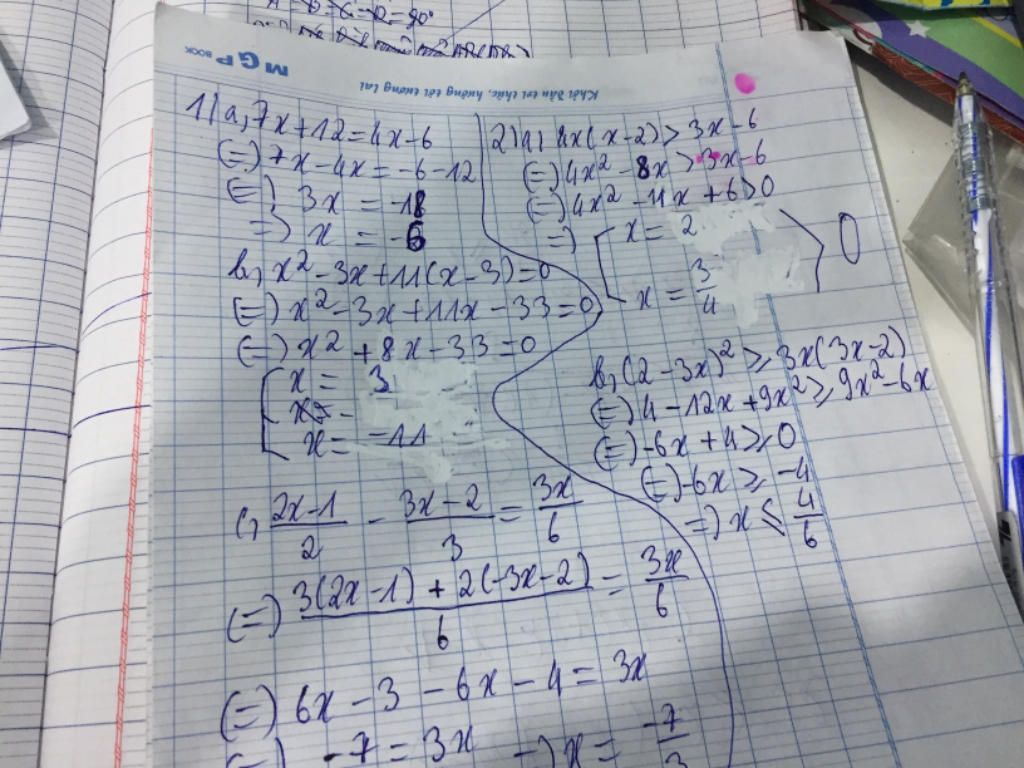 A = D = G = D = 90°
MGP BOOK
Khơi bản tri thức, hướng tới tương lai
1) a, 7x + 12 = 4x - 6
(=) 7x - 4x = -6 - 12
(=) 3x = -18
=) x = -6
b, x² - 3x + 11(x - 3) = 0
(=) x² - 3x + 11x - 33 = 0
(=) x² + 8x - 33 = 0
[ x = 3
x = -11
c, (2x - 1)/2 - (3x - 2)/3 = 3x/6
(=) (3(2x - 1) + 2(-3x - 2))/6 = 3x/6
(=) 6x - 3 - 6x - 4 = 3x
(=) -7 = 3x =) x = -7/3
2) a) 4x(x - 2) > 3x - 6
(=) 4x² - 8x > 3x - 6
(=) 4x² - 11x + 6 > 0
=) [ x = 2
x = 3/4 > 0
b, (2 - 3x)² ≥ 3x(3x - 2)
(=) 4 - 12x + 9x² ≥ 9x² - 6x
(=) -6x + 4 ≥ 0
(=) -6x ≥ -4
=) x ≤ 4/6